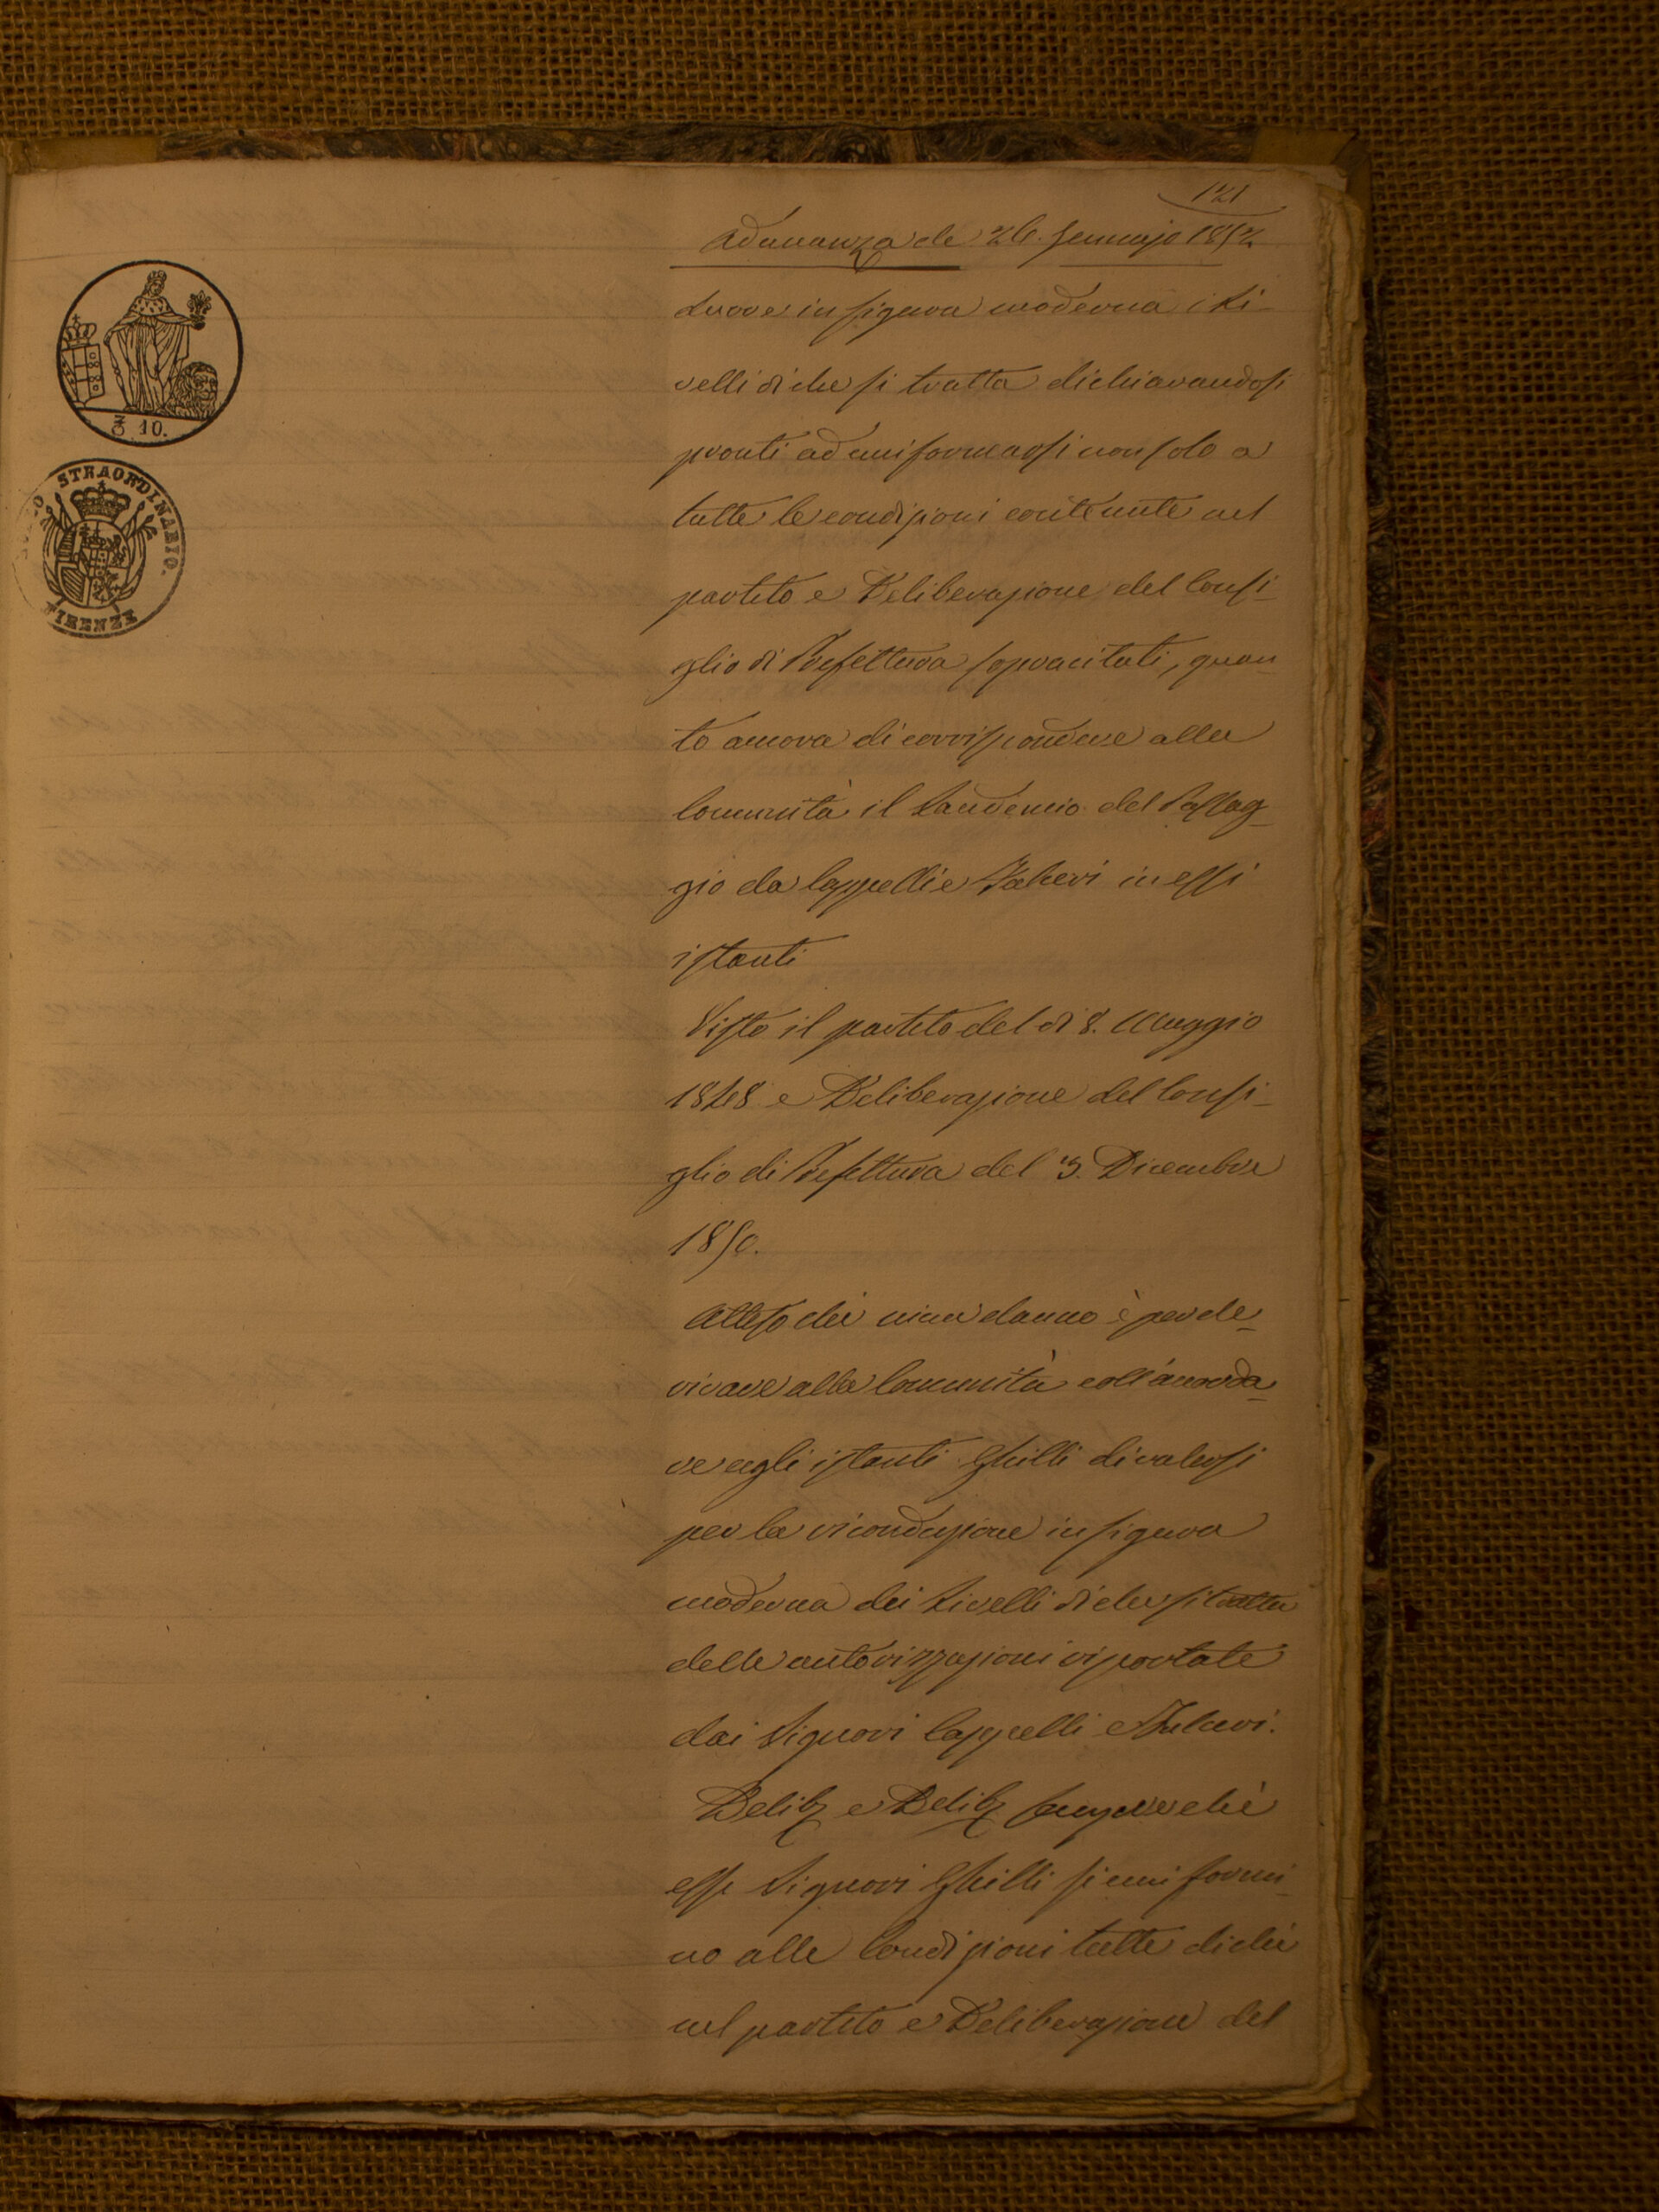 121
Adunanza de 26. Gennajo 1852
₰ 10.
STRAORDINARIO.
FIRENZE
durre in figura moderna i Li-
velli di che si tratta dichiarandosi
pronti ad uniformarsi non solo a
tutte le condizioni contenute nel
partito e Deliberazione del Consi-
glio di Prefettura sopracitati, quan-
to ancora di corrispondere alla
Comunità il Laudemio del Passag-
gio da Cappelli e in essi
istanti
Visto il partito del di 8. Maggio
1848 e Deliberazione del Consi-
glio di Prefettura del 3. Dicembre
1850.
Atteso chè niun danno è per de-
rivare alla Comunità coll'accorda-
re agli istanti Ghilli di valersi
per la riconduzione in figura
moderna dei Livelli di che si tratta
delle autorizzazioni riportate
dai Signori Cappelli e
Delib. e Delib. sempre chè
essi Signori Ghilli si uniformi-
no alle Condizioni tutte di chè
nel partito e Deliberazione del